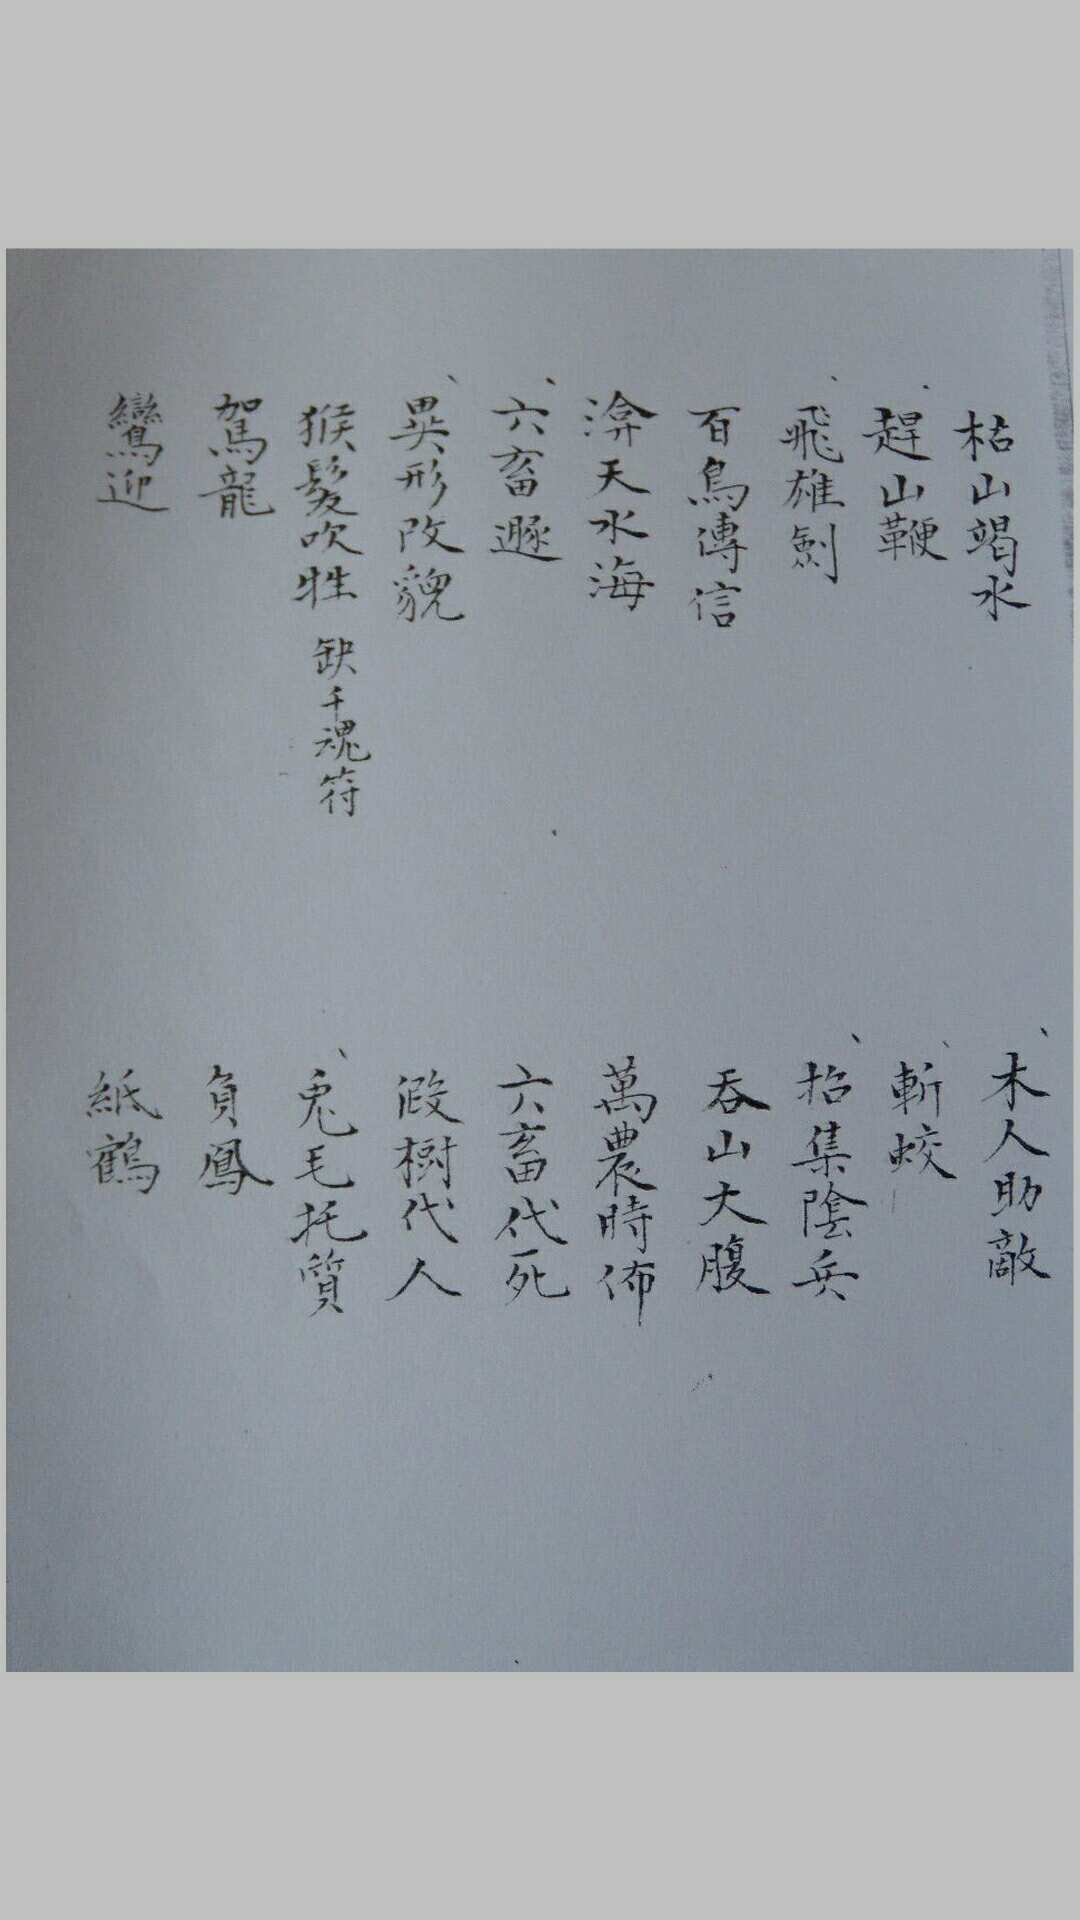 枯山竭水
趕山鞭
飛雄劍
百鳥傳信
渰天水海
六畜遯
異形改貌
猴髮吹牲 缺千魂符
駕龍
鸞迎
木人助敵
斬蛟
招集陰兵
吞山大腹
萬農時佈
六畜代死
假樹代人
兎毛托質
負鳳
紙鶴